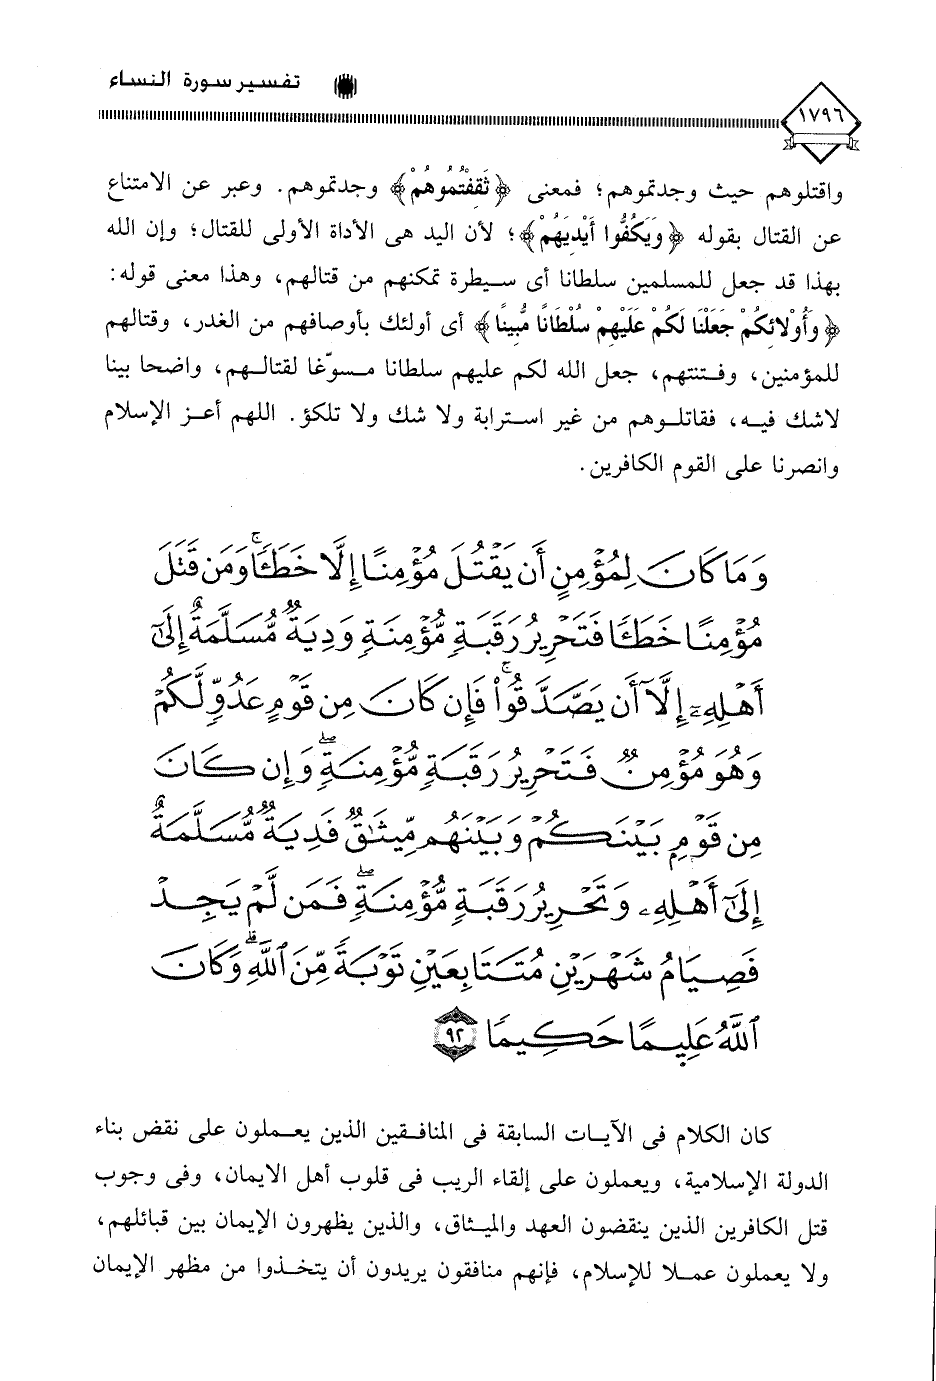 ١٧٩٦
تفسير سورة النساء
واقتلوهم حيث وجدتموهم؛ فمعنى ﴿ثَقِفْتُمُوهُمْ﴾ وجدتموهم. وعبر عن الامتناع
عن القتال بقوله ﴿وَيَكُفُّوا أَيْدِيَهُمْ﴾؛ لأن اليد هى الأداة الأولى للقتال؛ وإن الله
بهذا قد جعل للمسلمين سلطانا أى سيطرة تمكنهم من قتالهم، وهذا معنى قوله:
﴿وَأُوْلَائِكُمْ جَعَلْنَا لَكُمْ عَلَيْهِمْ سُلْطَانًا مُّبِينًا﴾ أى أولئك بأوصافهم من الغدر، وقتالهم
للمؤمنين، وفتنتهم، جعل الله لكم عليهم سلطانا مسوّغا لقتالهم، واضحا بينا
لاشك فيه، فقاتلوهم من غير استرابة ولا شك ولا تلكؤ. اللهم أعز الإسلام
وانصرنا على القوم الكافرين.
وَمَا كَانَ لِمُؤْمِنٍ أَن يَقْتُلَ مُؤْمِنًا إِلَّا خَطَـًٔا ۚ وَمَن قَتَلَ
مُؤْمِنًا خَطَـًٔا فَتَحْرِيرُ رَقَبَةٍ مُّؤْمِنَةٍ وَدِيَةٌ مُّسَلَّمَةٌ إِلَىٰٓ
أَهْلِهِۦٓ إِلَّآ أَن يَصَّدَّقُوا۟ ۚ فَإِن كَانَ مِن قَوْمٍ عَدُوٍّ لَّكُمْ
وَهُوَ مُؤْمِنٌ فَتَحْرِيرُ رَقَبَةٍ مُّؤْمِنَةٍ ۖ وَإِن كَانَ
مِن قَوْمٍۭ بَيْنَكُمْ وَبَيْنَهُم مِّيثَـٰقٌ فَدِيَةٌ مُّسَلَّمَةٌ
إِلَىٰٓ أَهْلِهِۦ وَتَحْرِيرُ رَقَبَةٍ مُّؤْمِنَةٍ ۖ فَمَن لَّمْ يَجِدْ
فَصِيَامُ شَهْرَيْنِ مُتَتَابِعَيْنِ تَوْبَةً مِّنَ ٱللَّهِ ۗ وَكَانَ
ٱللَّهُ عَلِيمًا حَكِيمًا ٩٢
كان الكلام فى الآيات السابقة فى المنافقين الذين يعملون على نقض بناء
الدولة الإسلامية، ويعملون على إلقاء الريب فى قلوب أهل الايمان، وفى وجوب
قتل الكافرين الذين ينقضون العهد والميثاق، والذين يظهرون الإيمان بين قبائلهم،
ولا يعملون عملا للإسلام، فإنهم منافقون يريدون أن يتخذوا من مظهر الإيمان